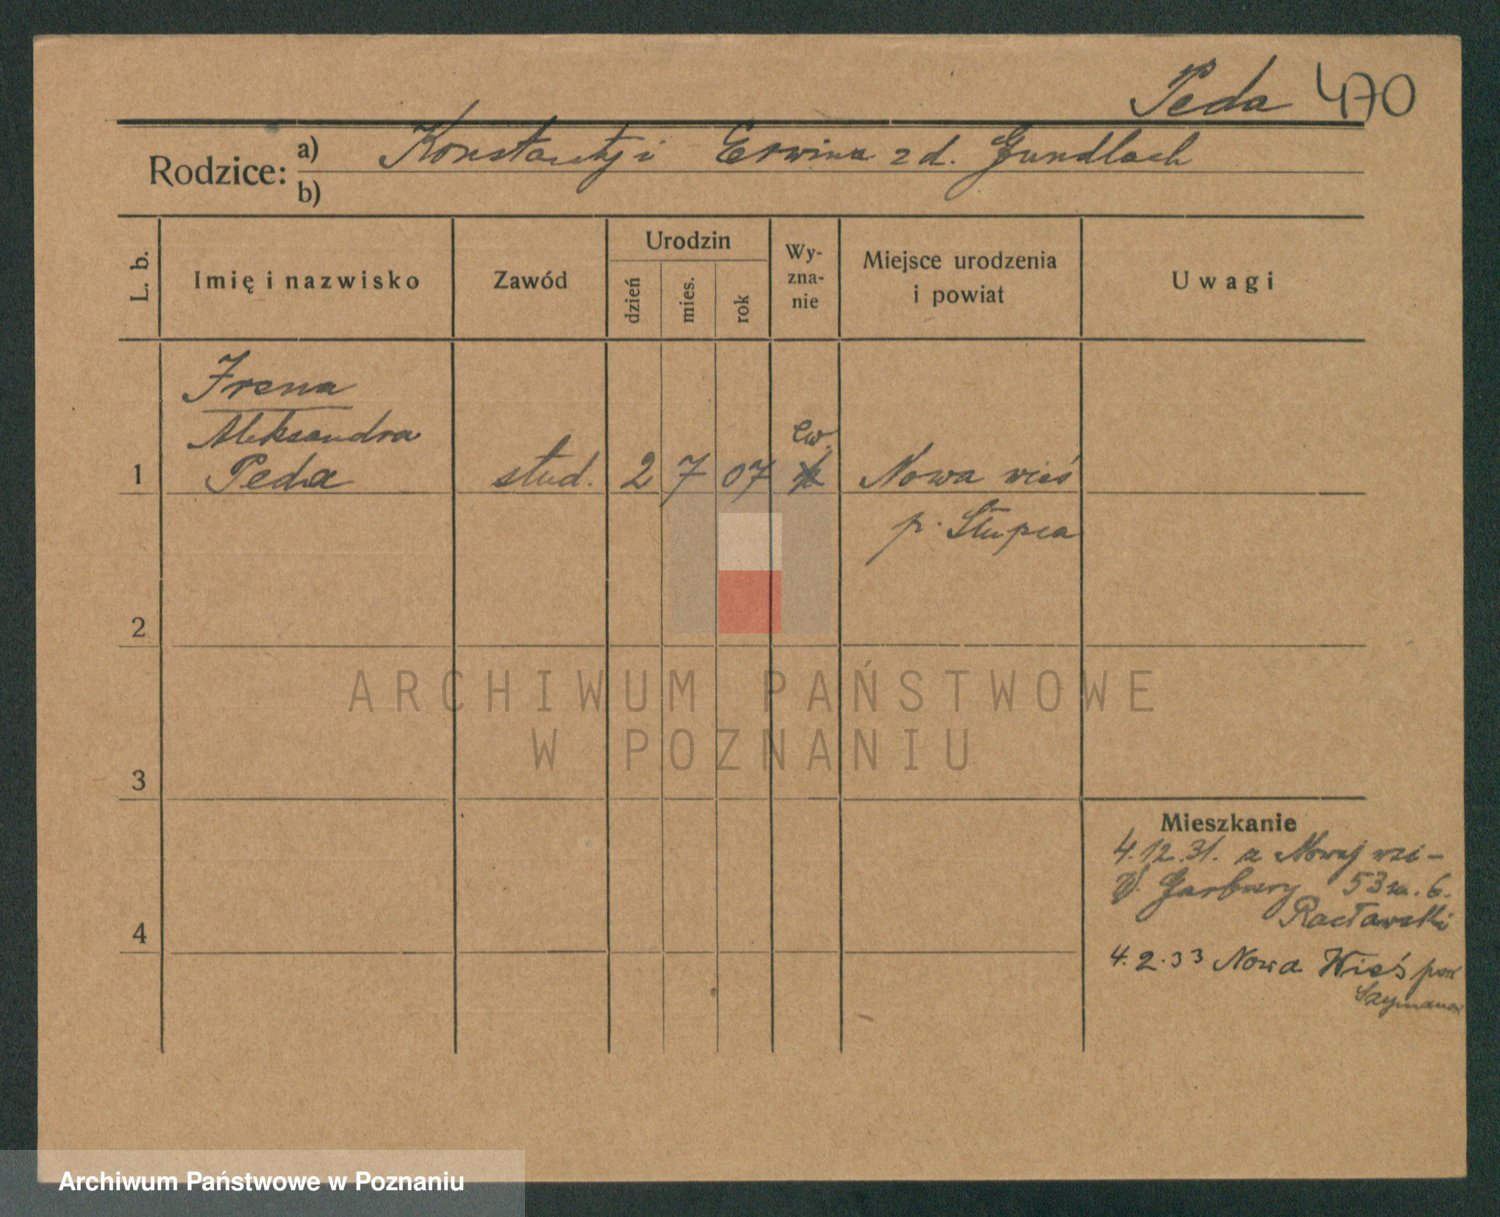 Peda 470
Rodzice: a) Konstanty i Erwina z d. Gundlach
b)
L. b. Imię i nazwisko Zawód Urodzin dzień mies. rok Wy-zna-nie Miejsce urodzenia i powiat Uwagi
Irena
Aleksandra
ew.
1 Peda stud. 2 7 07 Nowa wieś
p. Słupca
2
ARCHIWUM PAŃSTWOWE
W POZNANIU
3
Mieszkanie
4.12.31. z Nowej wsi -
Garbary 53 m. 6.
Racławski
4
4.2.33 Nowa Wieś pow
Archiwum Państwowe w Poznaniu